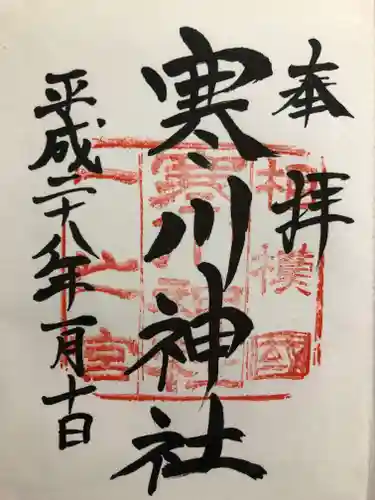 奉拝
寒川神社
平成二十八年一月十日
相模國
寒川神社
一之宮